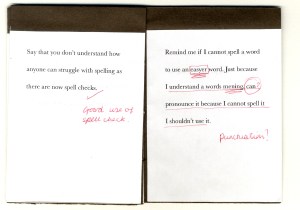 Say that you don't understand how
anyone can struggle with spelling as
there are now spell checks.
Good use of
spell check.
Remind me if I cannot spell a word
to use an easyer word. Just because
I understand a words mening can
pronounce it because I cannot spell it
I shouldn't use it.
punctuation!